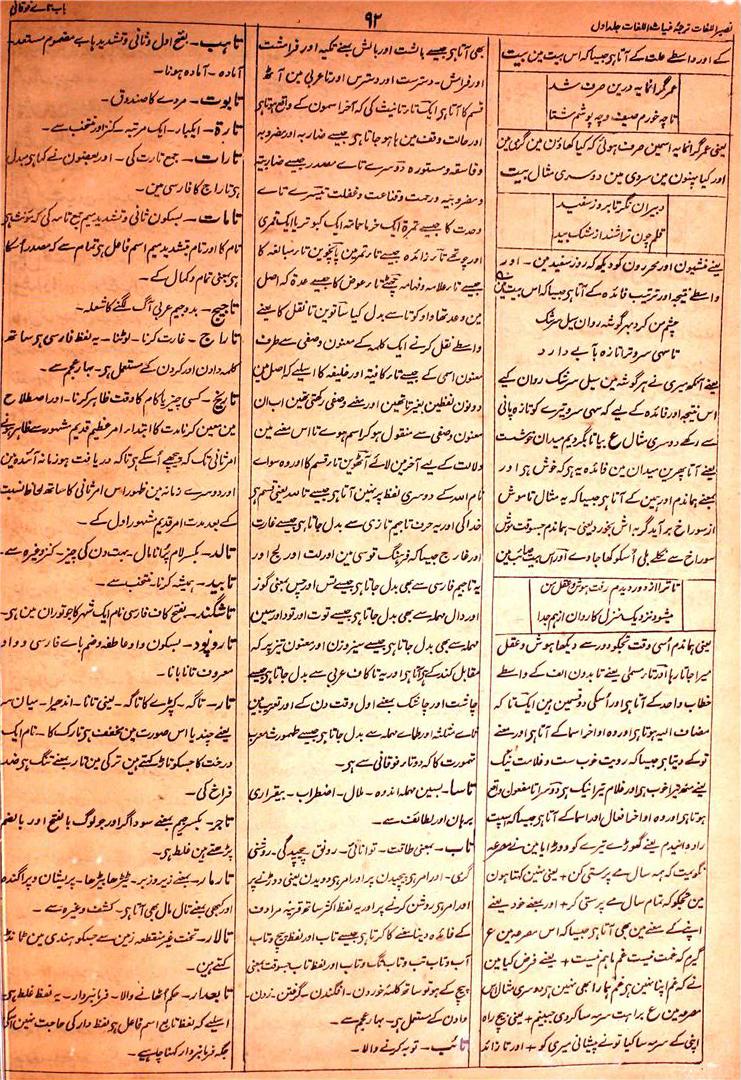 نصیر اللغات ترجمۂ غیاث اللغات جلد اول
۹۲
باب تاے فوقانی
کے اور واسطے علت کے آتا ہی جیسا کہ اس بیت مین بیت
عمر گرانمایہ درین صرف شد
تا چہ خورم صیف و چہ پوشم شتا
یعنی عمر گرانمایہ اسمین صرف ہوئی کہ کیا کھاؤن مین گرمی مین
اور کیا پہنون مین سردی مین دوسری مثال بیت
دبیران نگر تا بروز سفید
قلم چون تراشند از مشک بید
یعنے منشیون اور محررون کو دیکھ کہ روز سفید مین۔ اور
واسطے نتیجہ اور ترتیب فائدہ کے آتا ہی جیسا کہ اس بیت مین
چشم من کرد بہر گوشہ روان سیل سرشک
تا سہی سرو ترا تازہ بآبے دارد
یعنے آنکھ میری نے ہر گوشہ مین سیل سرشک روان کیے
اس نتیجہ اور فائدہ کے لیے کہ سہی سرو تیرے کو تازہ پانی
سے رکھے دوسری مثال ع بیا تا بگردیم میدان خوشست
یعنے آتا پھرین میدان مین فائدہ یہ ہی کہ خوش ہی اور
بمعنے ہماندم اور ہین کے آتا ہی جیسا کہ یہ مثال تا موش
از سوراخ برآید گربہ اش بخورد یعنی۔ ہماندم جسوقت موش
سوراخ سے نکلے بلی اُسکو کھا جاوے اور اس بیت صائب مین
تا ترا از دور دیدم رفت ہوش و عقل من
میشود نزدیک منزل کاروان از ہم جدا
یعنی ہماندم اُسی وقت تجکو دور سے دیکھا ہوش و عقل
میرا جاتا رہا اور تا رسمی یعنے تا بدون الف کے واسطے
خطاب واحد کے آتا ہی اور اُسکی دو قسمین ہین ایک تا کہ
مضاف الیہ ہوتا ہی اور وہ اواخر اسما کے آتا ہی اور معنے
تو کے دیتا ہی جیسا کہ رویت خوب ست و غلامت نیک
یعنے منھ تیرا خوب ہی اور غلام تیرا نیک ہی دوسرا تا مفعول واقع
ہوتا ہی اور وہ اواخر افعال اور اسما کے آتا ہی جیسا کہ اسپت
را دوانیدم یعنے گھوڑے تیرے کو دوڑایا مین نے مصرعہ
نگویت کہ ہمہ سال مے پرستی کن + یعنے نہین کہتا ہون
مین تجکو کہ تمام سال مے پرستی کر + اور بمعنے خود یعنے
اپنے کے معنے مین بھی آتا ہی جیسا کہ اس مصرعہ مین ع
گیرم کہ غمت نیست غم ما ہم نیست + یعنے فرض کیا مین
نے کہ غم اپنا نہین ہی غم ہمارا بھی نہین ہی دوسری مثال اس
مصرعہ مین ع براہت سرمہ سا کردی جبینم + یعنی بیچ راہ
اپنی کے سرمہ سا کیا تو نے پیشانی میری کو + اور تا زائد
بھی آتا ہی جیسے باشت اور بالش بمعنے تکیہ اور فراشت
اور فراش۔ دسترست اور دسترس اور تا عربی مین آٹھ
قسم کا آتا ہی ایک تا تانیث کی کہ آخر اسمون کے واقع ہوتا ہی
اور حالت وقف مین ہا ہو جاتا ہی جیسے ضاربہ اور مضروبہ
و فاسقہ و مستورہ دوسرے تاے مصدر جیسے ضاربیۃ
و مضروبیۃ و رحمت و قناعت و غفلت تیسرے تاے
وحدت کا جیسے تمرۃ ایک خرما حمامۃ ایک کبوتر یا ایک قمری
اور چوتھے تا زائدہ جیسے تا تمرمین پانچوین تا مبالغہ کا
جیسے تا علامہ و فہامہ چھٹے تا عوض کا جیسے عدۃ کہ اصل
مین وعد تھا واو کو تا سے بدل کیا ساتوین تا نقل کا یعنے
واسطے نقل کرنے ایک کلمہ کے معنون وصفی سے طرف
معنون اسمی کے جیسے تا کافیہ اور خلیفہ کا اسلیے کہ اصل مین
دونون لفظین بغیر تا تھین اور معنے وصفی رکھتی تھین اب ان
معنون وصفی سے منقول ہو کر اسم ہوے تا اس معنے مین
دلالت کے لیے آخر مین لائے آٹھوین تا قسم کا اور وہ سواے
نام اللہ کے دوسری لفظ پر نہین آتا ہی جیسے تاللہ یعنی قسم ہی
خدا کی اور یہ حرف تا جیم تازی سے بدل جاتا ہی جیسے غارت
اور غارج جیسا کہ فرہنگ قوسی مین اور لت اور لج اور
یہ تا جیم فارسی سے بھی بدل جاتا ہی جیسے تس اور چس بمعنی گوز
اور دال مہملہ سے بھی بدل جاتا ہی جیسے توت اور تود اور سین
مہملہ سے بھی بدل جاتا ہی جیسے
مقابل کند کے ہی آتا ہی اور یہ تا کاف عربی سے بدل جاتا ہی جیسے
چاشت اور چاشک بمعنے اول وقت دن کے اور تعریب مین
ثاے مثلثہ اور طاے مہملہ سے بدل جاتا ہی جیسے طہمورث معرب
تہمورت کا کہ دو تا فوقانی سے ہی۔
تاسا۔ بسین مہملہ اندوہ۔ ملال۔ اضطراب۔ بیقراری
برہان اور لطائف سے۔
تاب۔ بمعنی طاقت۔ توانائی۔ رونق۔ پیچیدگی۔ روشنی
گرمی۔ اور امر ہی پیچیدن پر اور امر ہی دویدن یعنی دوڑنے پر
اور امر ہی روشن کرنے پر اور یہ لفظ اکثر ساتھ قرینہ مرادف
کے فائدہ دیتا ہی جیسے تاب اور لفظ پیچ و تاب
آب و تاب و تب و تاب و تاب اور لفظ تاب جسوقت بمعنی
پیچ کے ہو تو ساتھ کلمہ خوردن۔ افگندن۔ گرفتن۔ زدن۔
دادن کے مستعمل ہی۔ بہار عجم سے۔
تائب۔ توبہ کرنے والا۔
تاہب۔ بفتح اول و ثانی و تشدید ہاے مضموم مستعد۔
آمادہ۔ آمادہ ہونا۔
تابوت۔ مردے کا صندوق۔
تارۃ۔ ایکبار۔ ایک مرتبہ۔ کنز اور منتخب سے۔
تارات۔ جمع تارت کی۔ اور بعضون نے کہا ہی مبدل
ہی تاراج کا فارسی مین۔
تامات۔ بسکون ثانی و تشدید میم جمع تامہ کی کہ مونث ہی
تام کا اور تام بتشدید میم اسم فاعل ہی تمام سے کہ مصدر اُسکا
ہی بمعنی تمام و کمال کے۔
تاجیج۔ بدو جیم عربی آگ لگنے کا شعلہ۔
تاراج۔ غارت کرنا۔ لوٹنا۔ یہ لفظ فارسی ہی ساتھ
کلمہ دادن اور کردن کے مستعمل ہی۔ بہار عجم سے۔
تاریخ۔ کسی چیز یا کام کا وقت ظاہر کرنا۔ اور اصطلاح
مین معین کرنا مدت کا ابتداء امر عظیم قدیم مشہور سے ظاہر ہونے
امر ثانی تک کہ پیچھے اُسکے ہی تا کہ دریافت ہو زمانہ آئندہ مین
اور دوسرے زمانہ مین ظہور اس امر ثانی کا ساتھ لحاظ نسبت
کے بعد مدت امر قدیم مشہور اول کے۔
تالد۔ بکسر لام پُرانا مال۔ بہت دن کی چیز۔ کنز وغیرہ سے۔
تابید۔ ہمیشہ کرنا۔ منتخب سے۔
تاشکند۔ بفتح کاف فارسی نام ایک شہر کا جو توران مین ہی۔
تار و پود۔ بسکون واو عاطفہ و ضم باے فارسی و واو
معروف تانا بانا۔
تار۔ تاگہ۔ کپڑے کا تاگہ۔ یعنی تانا۔ اندھیرا۔ میان سر
یعنے چندیا اس صورت مین مخفف ہی تارک کا۔ نام ایک
درخت کا جسکو تاڑ کہتے ہین ترکی مین تار بمعنے تنگ ہی ضد
فراخ کی۔
تاجر۔ بکسر جیم بمعنے سوداگر اور جو لوگ بالفتح اور بالضم
پڑھتے ہین غلط ہی۔
تار مار۔ بمعنے زیر و زبر۔ ٹیڑھا بیڑھا۔ پریشان و پراگندہ
اور کبھی بمعنے تال مال بھی آتا ہی۔ کشف وغیرہ سے۔
تالار۔ تخت غیر منقطعہ زمین سے جسکو ہندی مین ٹانڈ
کہتے ہین۔
تابعدار۔ حکم اُٹھانے والا۔ فرمانبردار۔ یہ لفظ غلط ہی
اسلیے کہ لفظ تابع اسم فاعل ہی لفظ دار کی حاجت نہین اسکی
جگہ فرمانبردار کہنا چاہیے۔